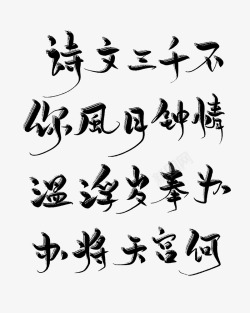 诗文三千不
你風月钟情
温浮岁奉为
办将天宫何